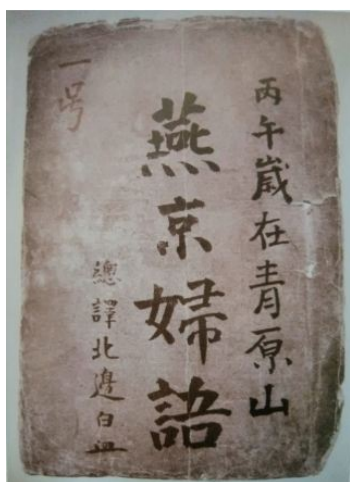 丙午嵗在青原山
燕京婦語
總譯北邊白血
一号